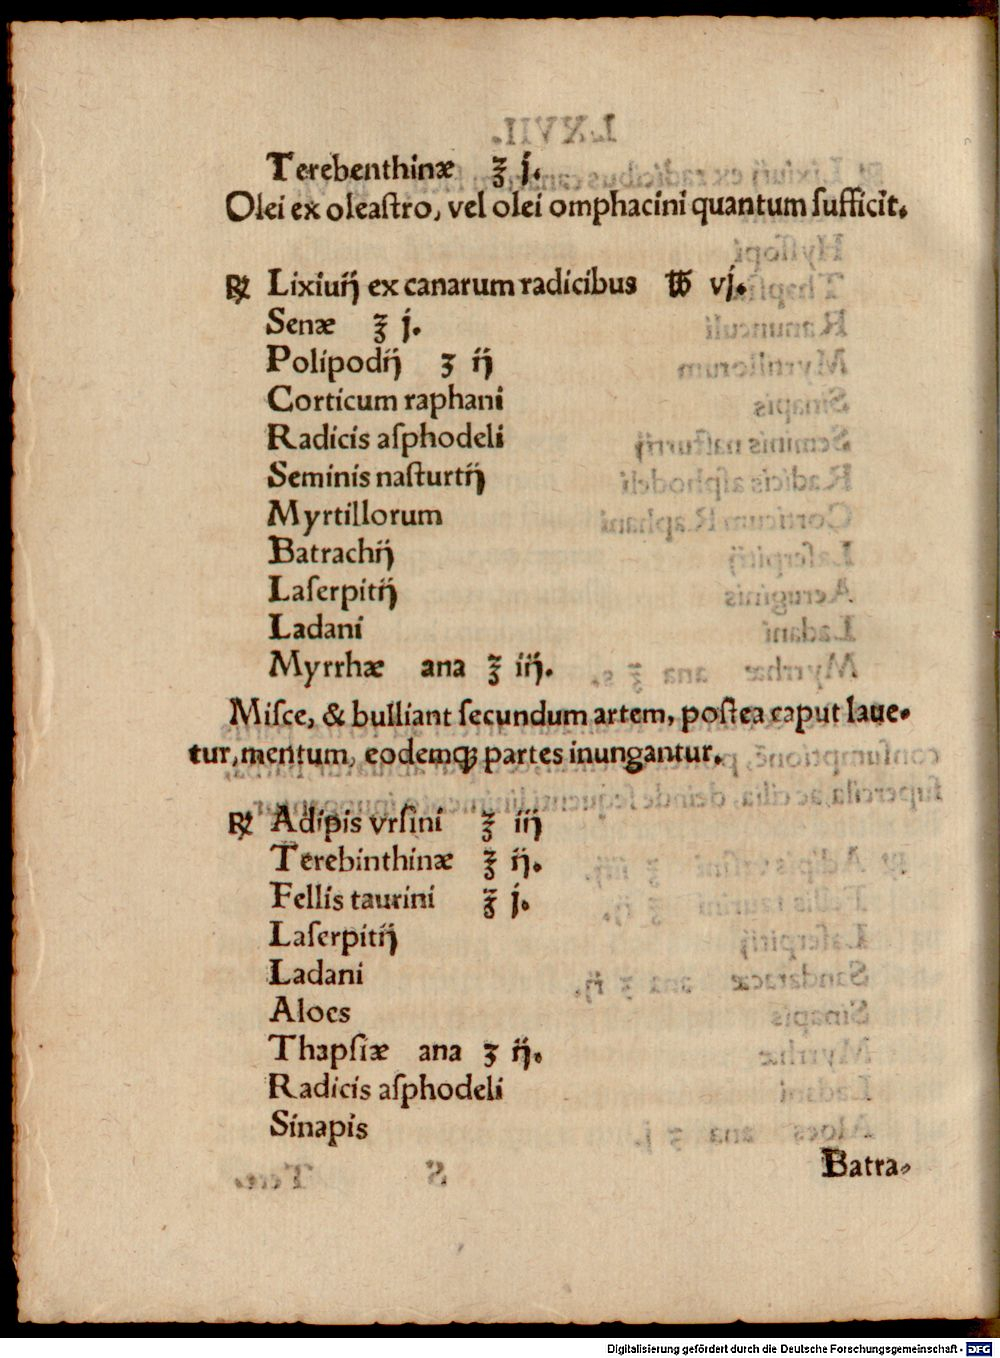 Terebenthinæ ℥ j.
Olei ex oleaſtro, vel olei omphacini quantum ſufficit.
℞ Lixiuij ex canarum radicibus ℔ vj.
Senæ ℥ j.
Polipodij ʒ ij
Corticum raphani
Radicis aſphodeli
Seminis naſturtij
Myrtillorum
Batrachij
Laſerpitij
Ladani
Myrrhæ ana ℥ iij.
Miſce, & bulliant ſecundum artem, poſtea caput laue-
tur, mentum, eodemqꝫ partes inungantur.
℞ Adipis vrſini ℥ iij
Terebinthinæ ℥ ij.
Fellis taurini ℥ j.
Laſerpitij
Ladani
Aloes
Thapſiæ ana ʒ ij.
Radicis aſphodeli
Sinapis
Batra-
Digitalisierung gefördert durch die Deutsche Forschungsgemeinschaft - DFG